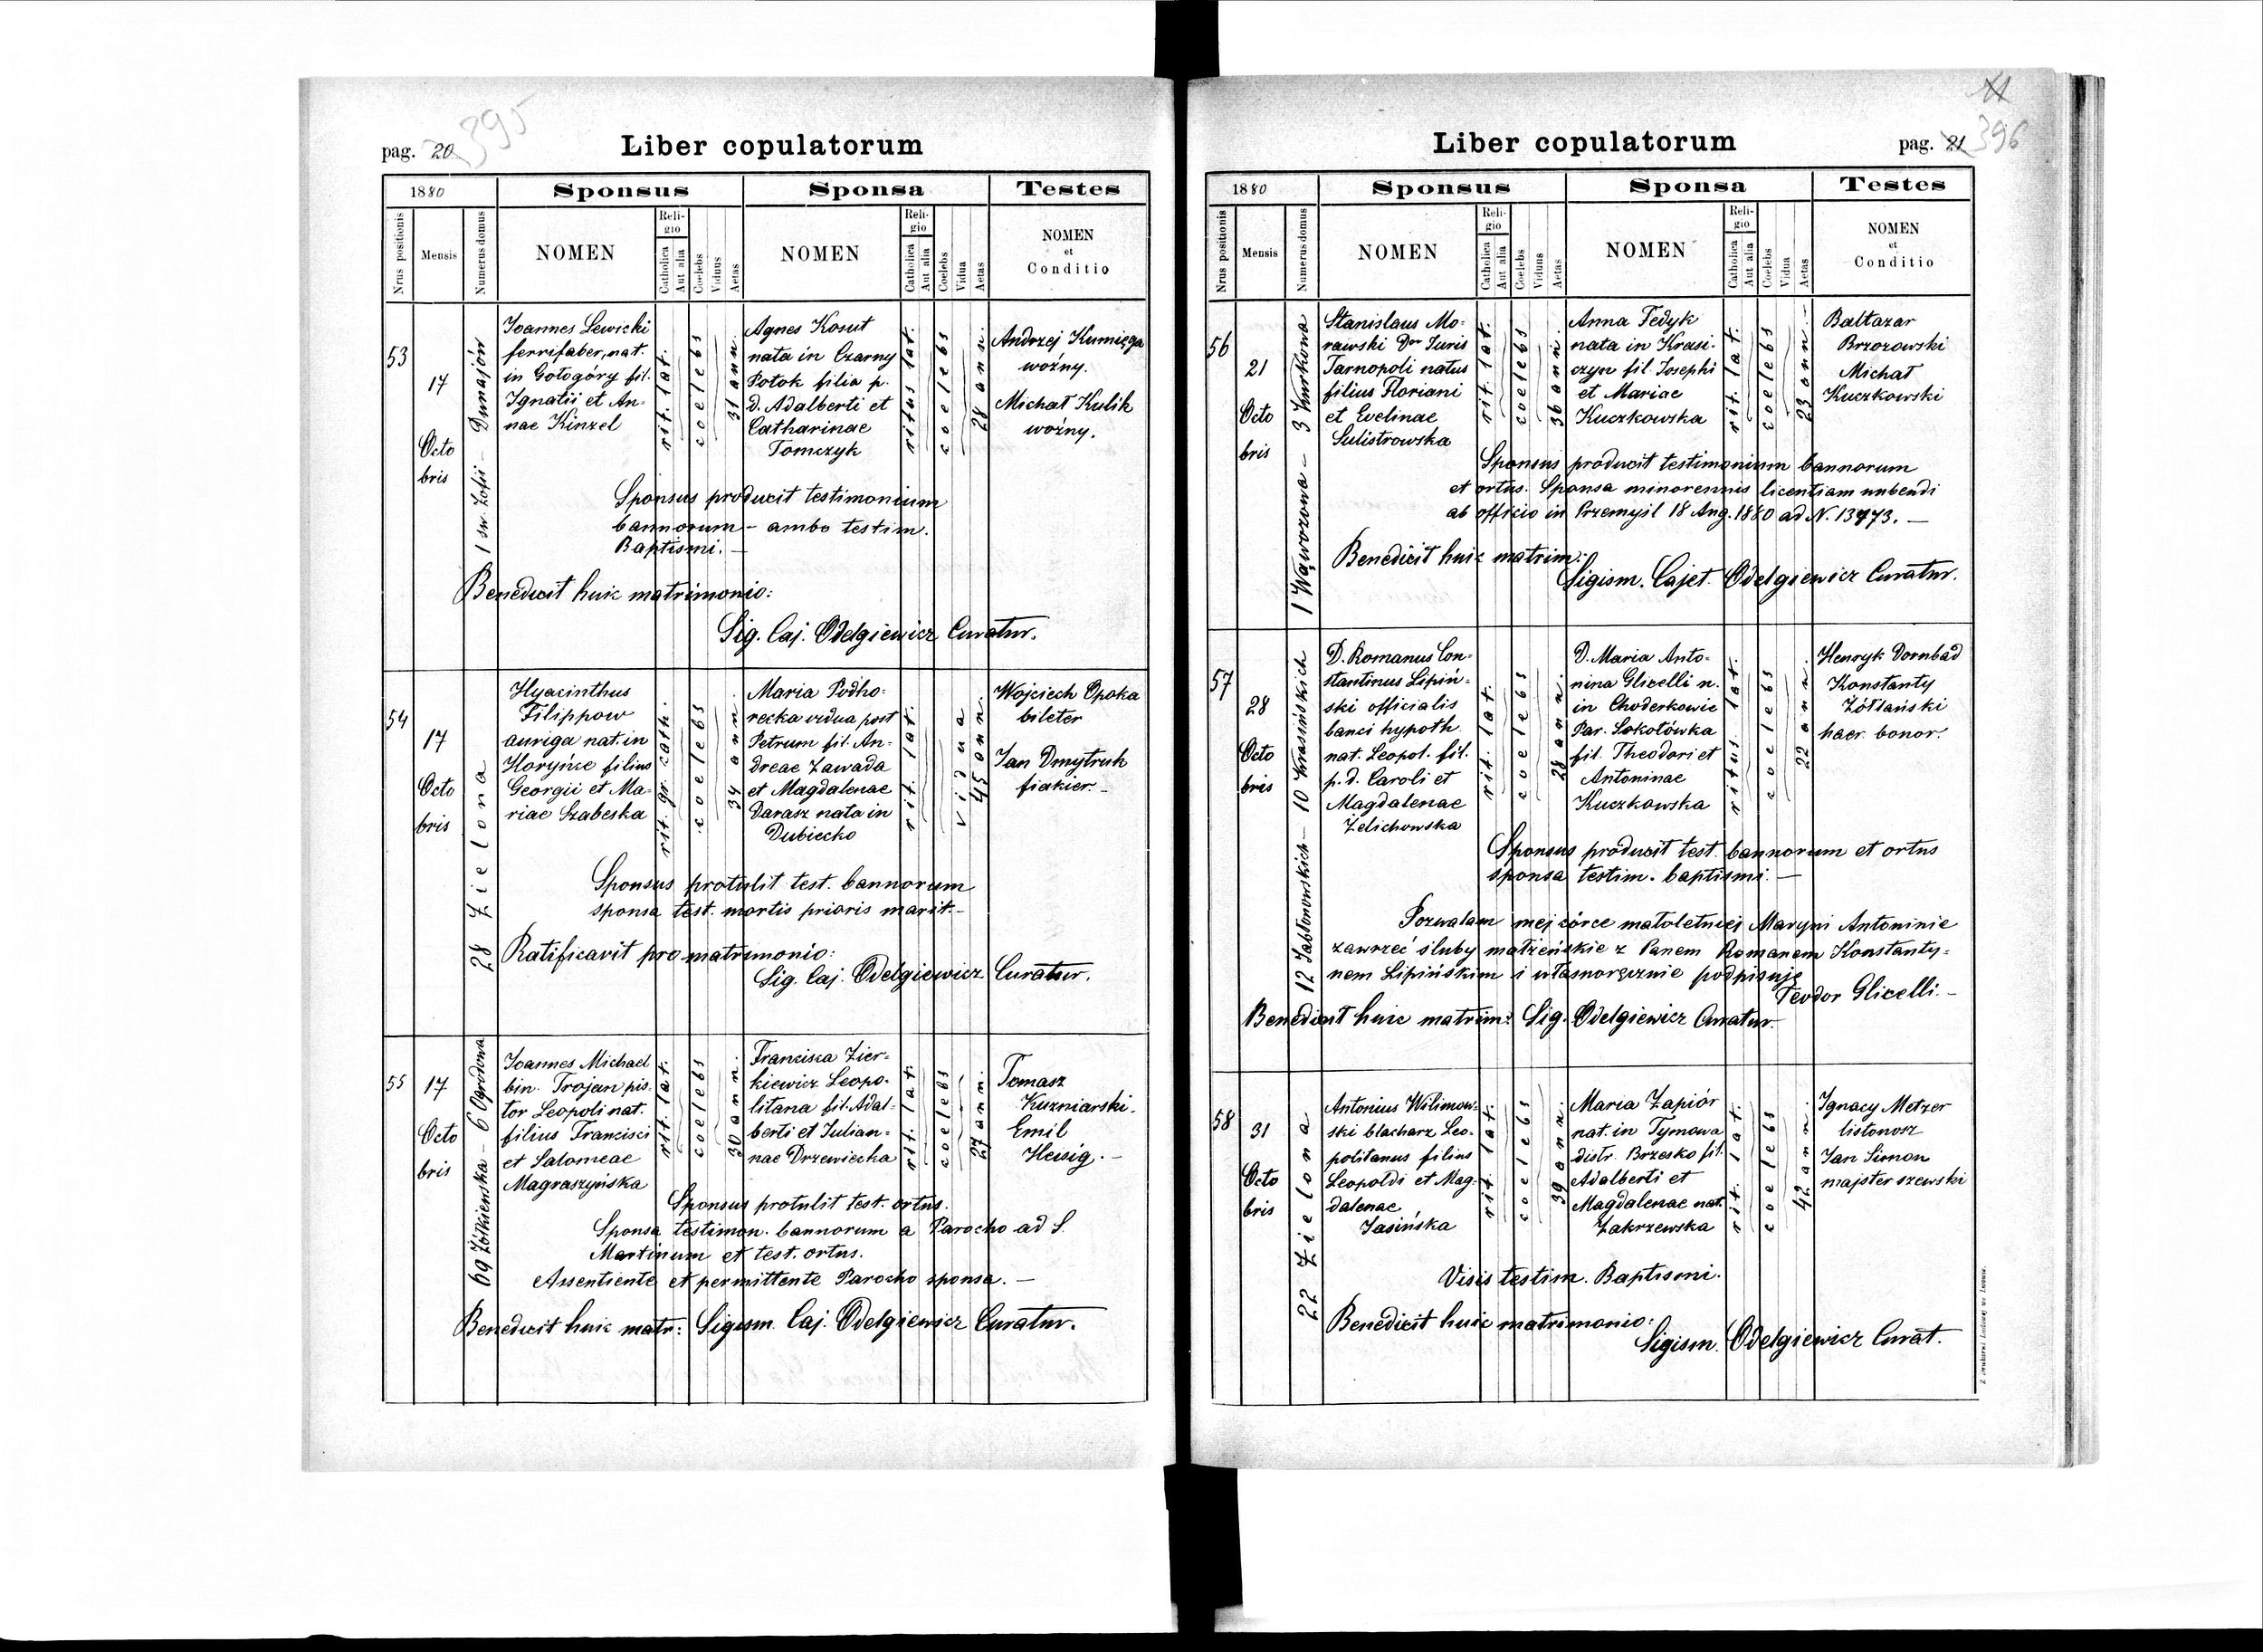 395
pag. 20
Liber copulatorum
1880
Sponsus
Sponsa
Testes
Nrus positionis
Mensis
Numerus domus
NOMEN
Religio
Catholica
Aut alia
Coelebs
Viduus
Aetas
NOMEN
Religio
Catholica
Aut alia
Coelebs
Vidua
Aetas
NOMEN
et
Conditio
53
17
Octo
bris
1 sw. Zofii – Dunajów
Joannes Lewicki
ferrifaber, nat.
in Gołogóry fil.
Ignatii et An-
nae Kinzel
rit. lat.
coelebs
31 ann.
Agnes Kosut
nata in Czarny
Potok filia p.
d. Adalberti et
Catharinae
Tomczyk
ritus lat.
coelebs
28 anni.
Andrzej Kumięga
woźny.
Michał Kulik
woźny.
Sponsus producit testimonium
bannorum – ambo testim.
Baptismi. –
Benedixit huic matrimonio:
Sig. Caj. Odelgiewicz Curatur.
54
17
Octo
bris
28 Zielona
Hyacinthus
Filippow
auriga nat. in
Horyńce filius
Georgii et Ma-
riae Szabeska
rit. gr. cath.
coelebs
34 ann.
Maria Podho-
recka vidua post
Petrum fil. An-
dreae Zawada
et Magdalenae
Darasz nata in
Dubiecko
rit. lat.
vidua
45 ann.
Wojciech Opoka
bileter
Jan Dmytruk
fiakier –
Sponsus protulit test. bannorum
sponsa test. mortis prioris marit. –
Ratificavit pro matrimonio:
Sig. Caj. Odelgiewicz Curatur.
55
17
Octo
bris
69 Żółkiewska – 6 Ogrodowa
Joannes Michael
bin. Trojan pis-
tor Leopoli nat.
filius Francisci
et Salomeae
Magraszyńska
rit. lat.
coelebs
30 ann.
Franciska Zier-
kiewicz Leopo-
litana fil. Adal-
berti et Julian-
nae Drzewiecka
rit. lat.
coelebs
27 ann.
Tomasz
Kuzniarski.
Emil
Heisig. –
Sponsus protulit test. ortus.
Sponsa testimon. bannorum a Parocho ad S.
Martinum et test. ortus.
Assentiente et permittente Parocho sponsa. –
Benedixit huic matr: Sigism. Caj. Odelgiewicz Curatur.
396
Liber copulatorum
pag. 21
1880
Sponsus
Sponsa
Testes
Nrus positionis
Mensis
Numerus domus
NOMEN
Religio
Catholica
Aut alia
Coelebs
Viduus
Aetas
NOMEN
Religio
Catholica
Aut alia
Coelebs
Vidua
Aetas
NOMEN
et
Conditio
56
21
Octo
bris
1 Wąwozowa – 3 Kurkowa
Stanislaus Mo-
rawski Dor Juris
Tarnopoli natus
filius Floriani
et Evelinae
Sulistrowska
rit. lat.
coelebs
36 ann.
Anna Fedyk
nata in Krasi-
czyn fil. Josephi
et Mariae
Kuczkowska
rit. lat.
coelebs
23 ann. –
Baltazar
Brzozowski
Michał
Kuczkowski
Sponsus producit testimonium bannorum
et ortus. Sponsa minorennis licentiam nubendi
ab officio in Przemyśl 18 Aug. 1880 ad N. 13473. –
Benedixit huic matrim:
Sigism. Cajet. Odelgiewicz Curatur.
57
28
Octo
bris
12 Jabłonowskich – 10 Krasińskich
D. Romanus Con-
stantinus Lipiń-
ski officialis
banci hypoth.
nat. Leopol. fil.
p. d. Caroli et
Magdalenae
Żelichowska
rit. lat.
coelebs
28 ann.
D. Maria Anto-
nina Glixelli n.
in Choderkowce
Par. Sokołówka
fil. Theodori et
Antoninae
Kuczkowska
ritus lat.
coelebs
22 ann.
Henryk Dornbad
Konstanty
Żółtański
haer. bonor.
Sponsus produxit test. bannorum et ortus
sponsa testim. baptismi. –
Pozwalam mej córce małoletniej Maryni Antoninie
zawrzeć śluby małżeńskie z Panem Romanem Konstanty-
nem Lipińskim i własnoręcznie podpisuję
Teodor Glixelli. –
Benedixit huic matrim: Sig. Odelgiewicz Curatur.
58
31
Octo
bris
22 Zielona
Antonius Wilimow-
ski blacharz Leo-
politanus filius
Leopoldi et Mag-
dalenae
Jasińska
rit. lat.
coelebs
39 ann.
Maria Zapiór
nat. in Tymowa
distr. Brzesko fil.
Adalberti et
Magdalenae nat.
Zakrzewska
rit. lat.
coelebs
42 ann.
Ignacy Metzer
listonosz
Jan Simon
majster szewski
Visis testim. Baptismi.
Benedixit huic matrimonio:
Sigism. Odelgiewicz Curat.
Z drukarni Ludowej we Lwowie.